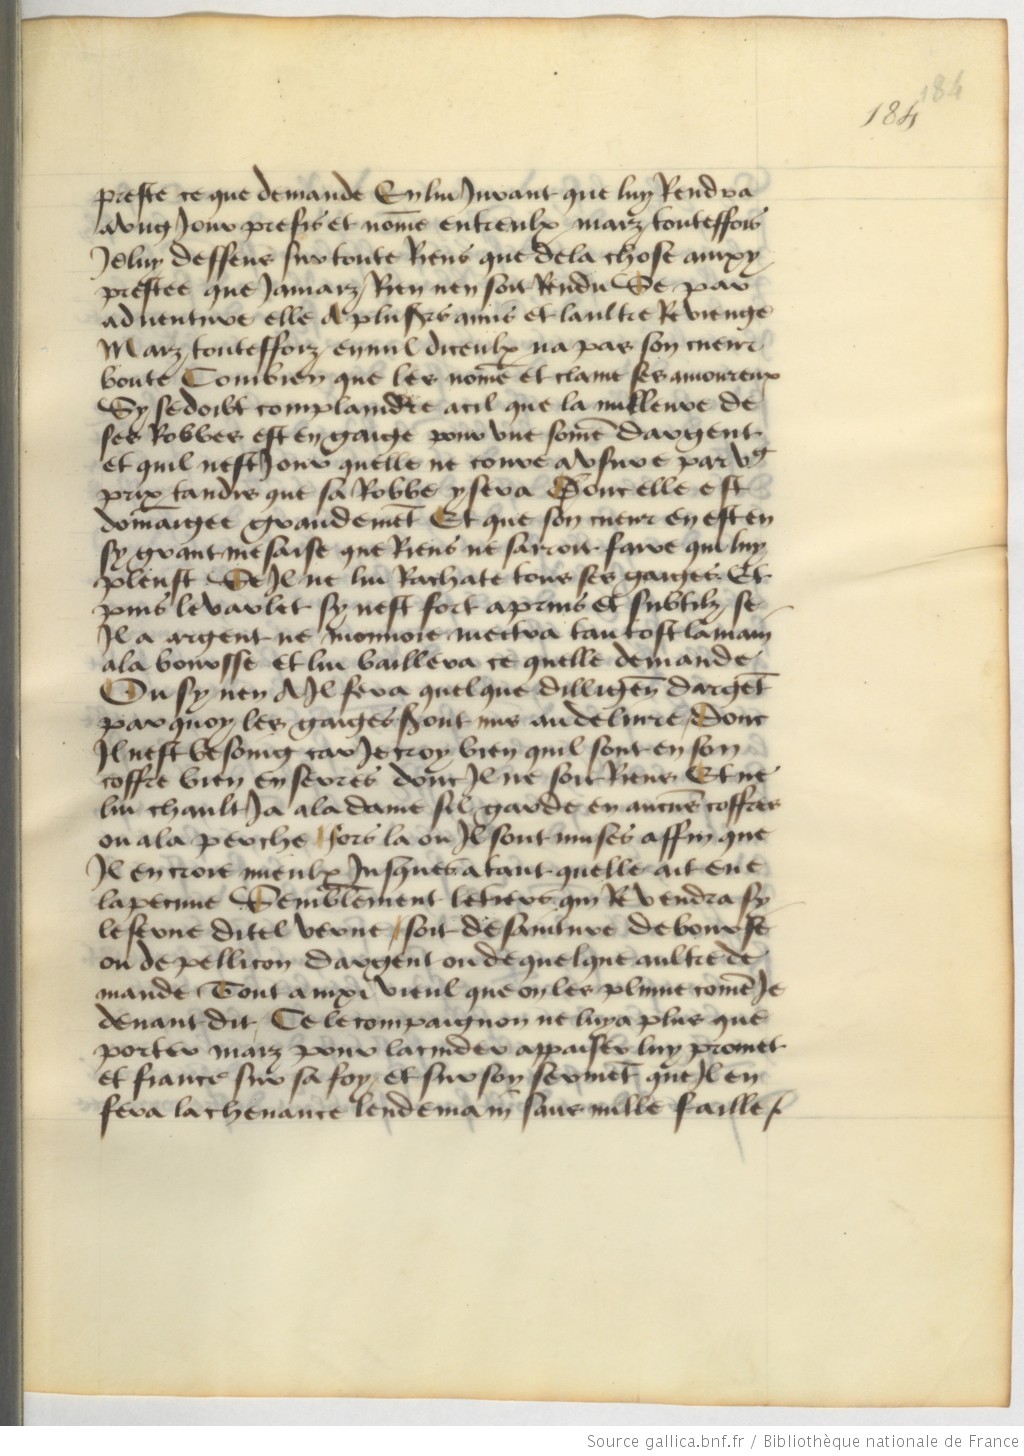 184
184
preste ce que demande En lui Jurant que luy Rendra
A vng Jour prefis et nom̄e entreulx marz touteffois
Je luy deffens sur toute Riens que de la chose ainxy
prestee que Jamarz Rien nen soit Rendu Se par
aduenture elle A plus̄rs amis et laultre Reuienge
Marz touteffoiz en nul diceulx na pas son cueur
boute Combien que les nom̄e et clame ses amoureux
Sy se doibt complaindre a cil que la meilleure de
ses Robbes est en gaige pour vne som̄e dargent
et quil nest Jour quelle ne coure A vsure par vg
prix tandis que sa Robbe y sera Donc elle est
dom̄aigee grandemēt Et que son cueur en est en
sy grant mesaise que Riens ne sarroit faire qui luy
pleust Se Jl ne lui Rachate tous ses gaiges Et
puis le varlet sy nest fort apruis et subtilz se
Jl a argent ne monnoie mectra tantost la main
a la boursse et lui baillera ce quelle demande
Ou sy nen A Jl fera quelque dilligen̄ dargēt
par quoy les gaiges sont mis au deliure Donc
Jl nest besoing car Je croy bien quil sont en son
coffre bien enserres dont Jl ne soit Riens Et ne
lui chault Ja a la dame sil garde en aucūe coffres
ou a la perche hors la ou Jl sont muses affin que
Jl en croie mieulx Jusques a tant quelle ait eue
la pecune Semblēment le tiers qui Reuendra sy
le serue ditel verue / soit de sainture de bourse
ou de pellicon dargent ou de quelque aultre de
mande Tout ainxi vieul que on les plume com̄e Je
deuant dit Ce le compaignon ne luy a plus que
porter marz pour la cuider appaiser luy promet
et fiance sur sa foy et sur son sermēt que Jl en
fera lacheuance lendemain sans nulle faille
Source gallica.bnf.fr / Bibliothèque nationale de France